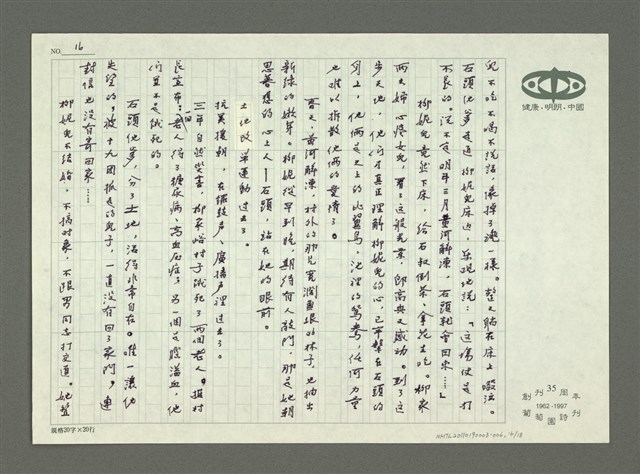 NO. 16
兒不吃不喝不說話,瘦掉了魂一樣。整天躺在床上啜泣。
石頭他爹走近柳妮兒床邊,樂觀地說:「這傷仗是打
不長的。說不定明年三月黃河解凍,石頭就會回來…」
柳妮兒竟然下床,給石叔倒茶、拿花生吃。柳家
兩夫婦心疼女兒,看了這般光景,卻高興又感動。到了這
步天地,他們才真正理解柳妮兒的心,已希繫在石頭的
身上,他倆是天上的比翼鳥,池裡的鴛鴦,任何力量
也難以拆散他倆的愛情了。
春天,黃河解凍,村外的那片寬闊
的林子,也抽出
新綠的嫩芽。柳妮從早到晚,期待有人敲門,那是她朝
思暮想的心上人——石頭,站在她的眼前。
土地改革運動過去了。
抗美援朝,在鑼鼓聲、廣播聲裡過去了。
三年自然災害,柳家峪村子餓死了兩個老人。據村
長宣布:一個老人得了糖尿病、高血石症;另一個是腦溢血,他
們並不是餓死的。
石頭他爹,分了土地,活得非常自在。唯一讓他
失望的,被十九團抓走的兒子,一直沒有回了家門,連
封信也沒有寄回家……
柳妮兒不結婚,不搞對象,不跟男同志打交道。她整
規格20字×20行
健康•明朗•中國
創刊35周年
1962-1997
葡萄園詩刊